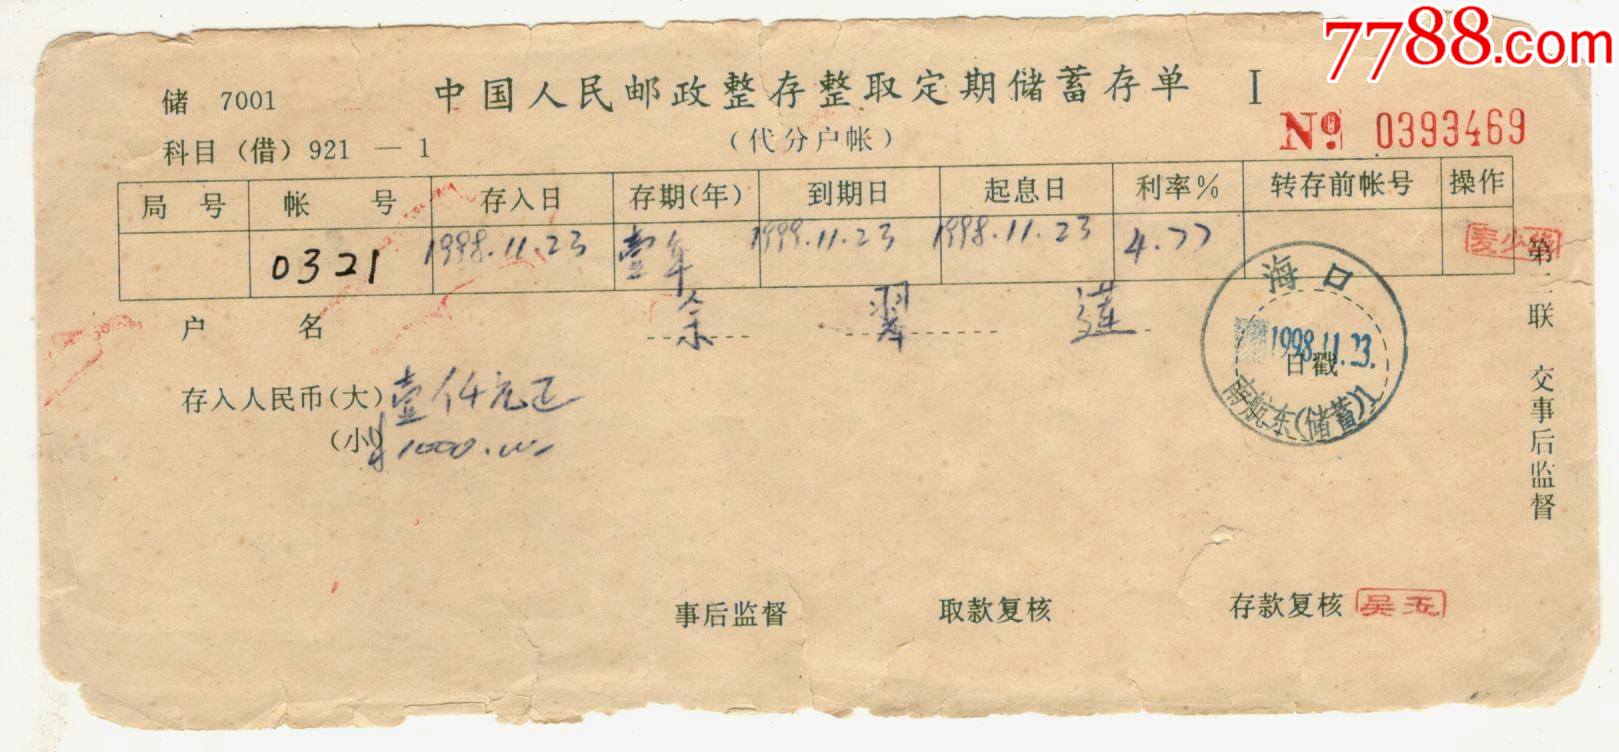 7788.com
储 7001
中国人民邮政整存整取定期储蓄存单 I
科目（借）921 — 1
（代分户帐）
No. 0393469
局号 帐号 存入日 存期(年) 到期日 起息日 利率% 转存前帐号 操作
0321 1998.11.23 壹年 1999.11.23 1998.11.23 4.77
户名 余翠莲
存入人民币(大) 壹仟元正
(小) ¥1000.00
海口
1998.11.23.
日戳
南航东(储蓄)1
第二联 交事后监督
事后监督 取款复核 存款复核 吴五